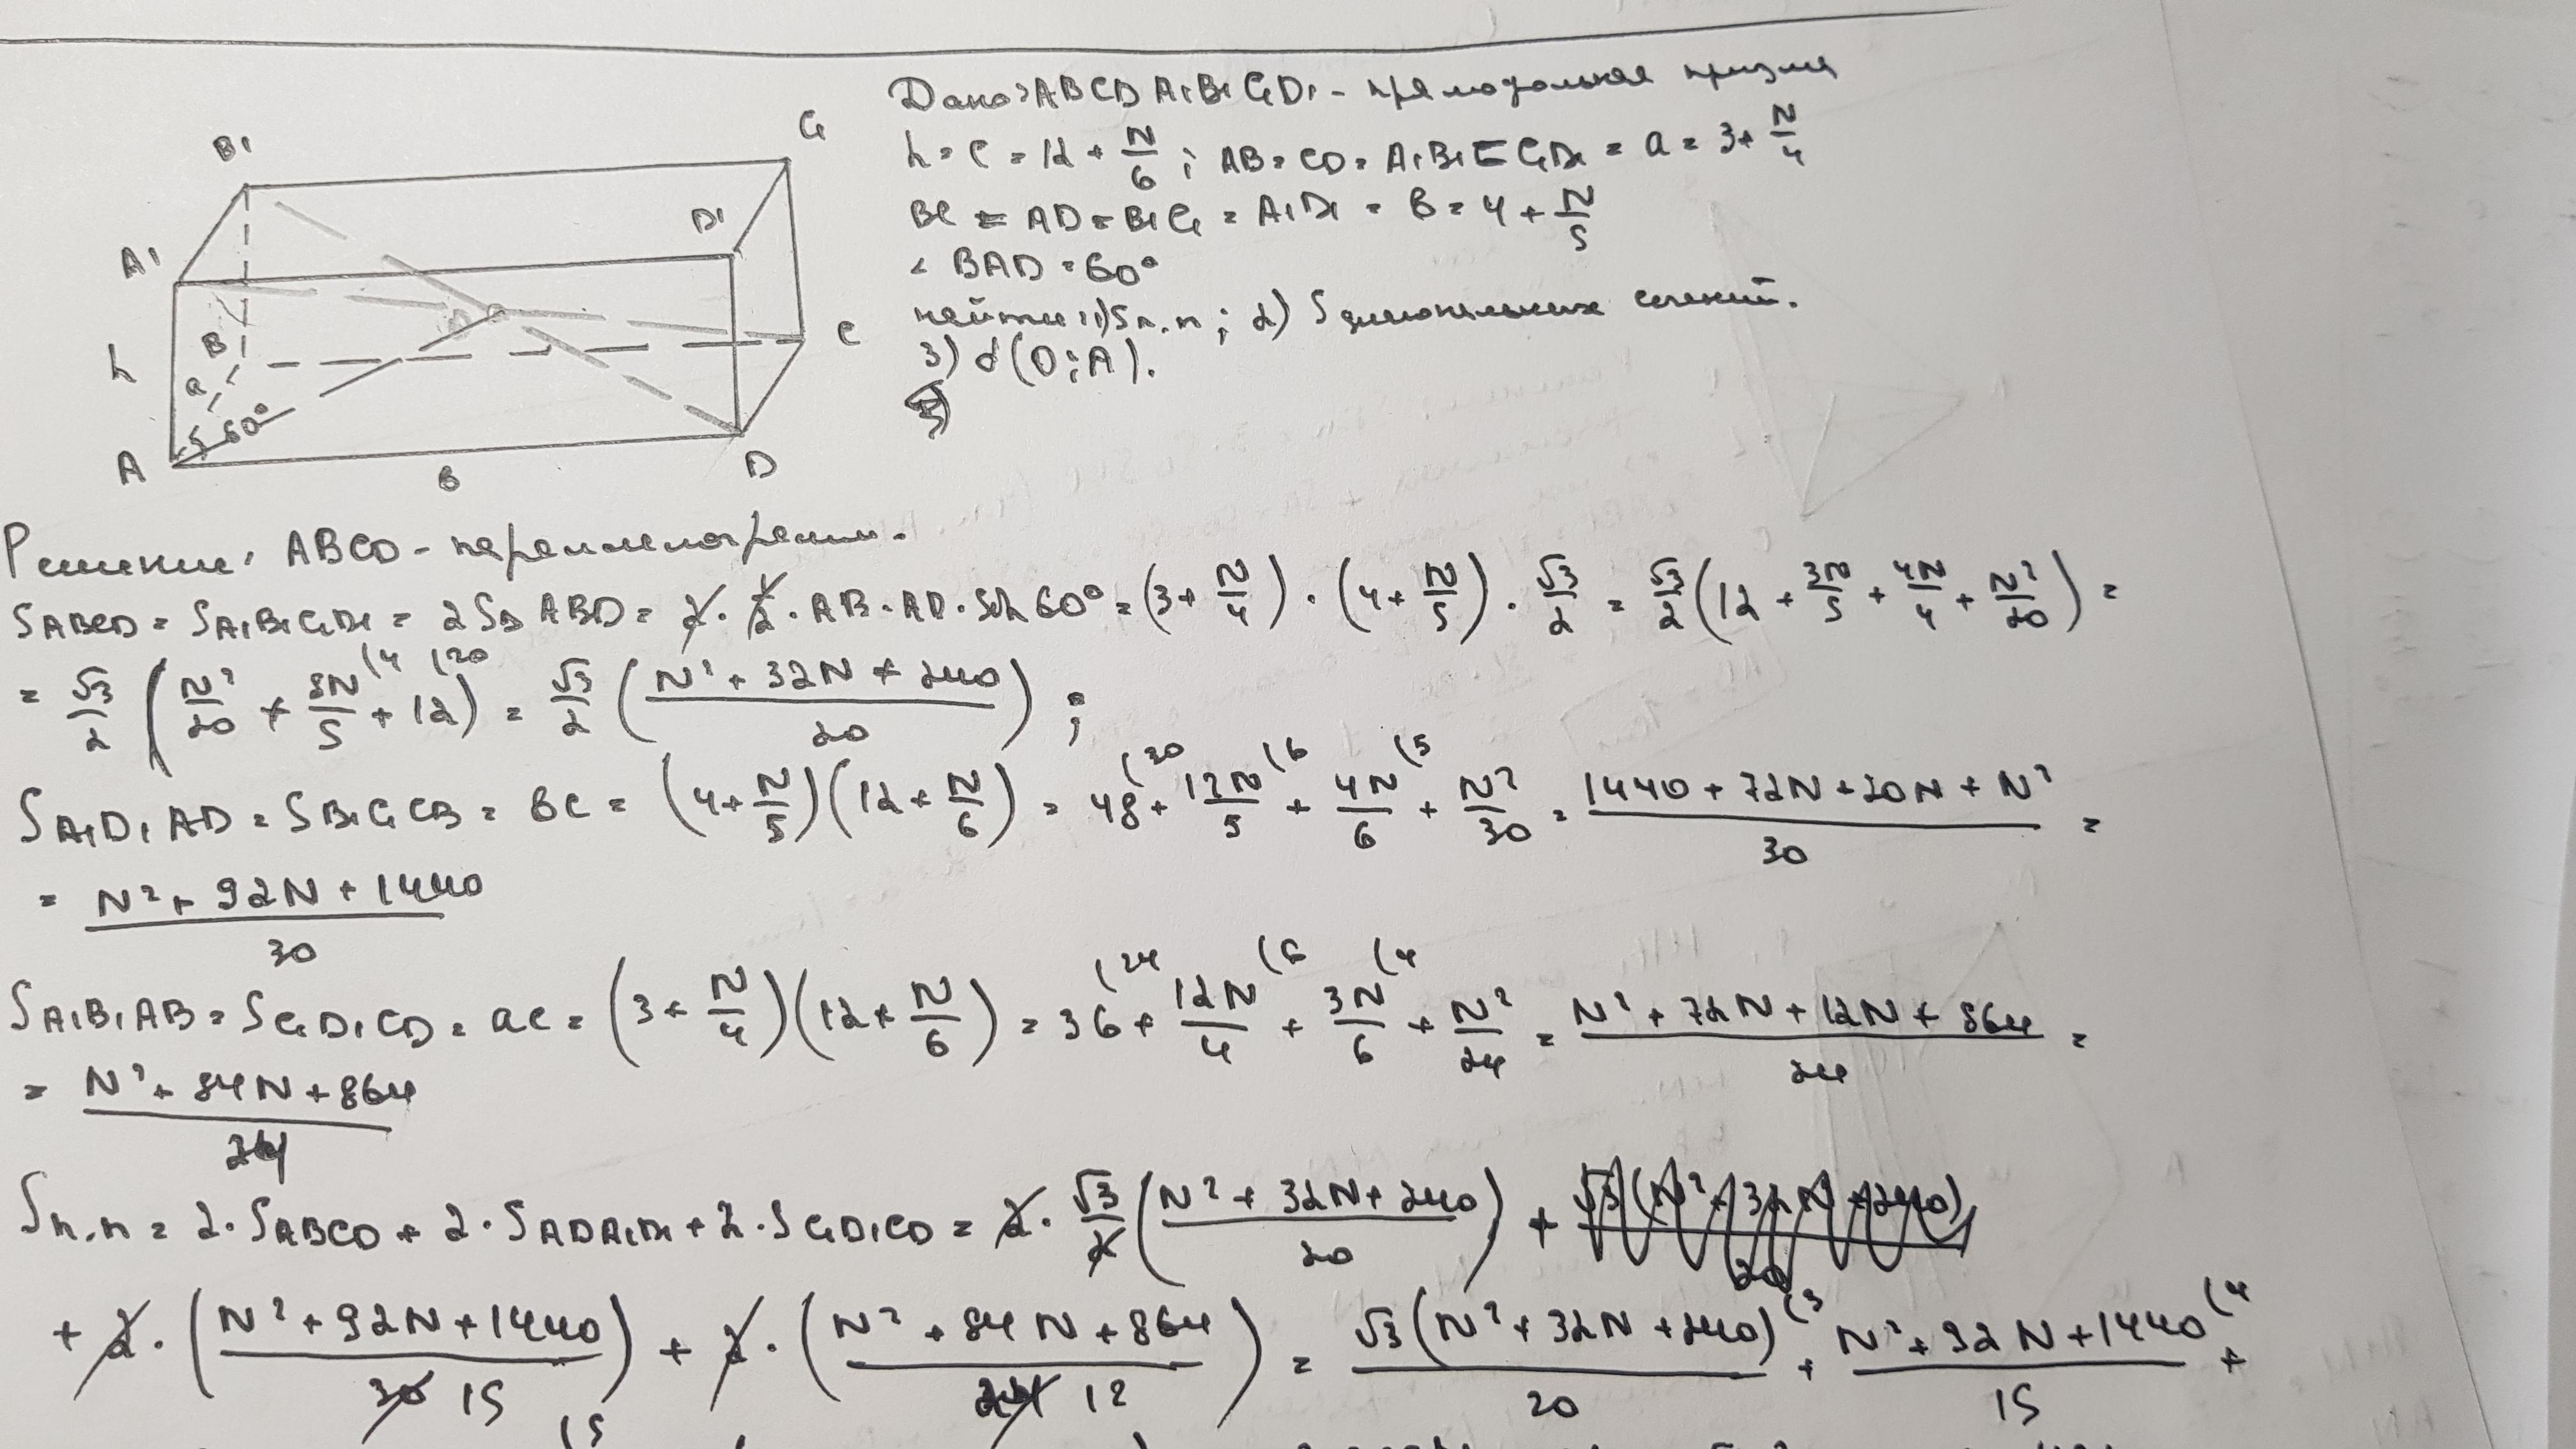 B₁
C₁
A₁
D₁
B
C
h
a
60°
A
в
D
O
Дано: ABCDA₁B₁C₁D₁ - прямоугольная призма
h = c = 12 + N/6 ; AB = CD = A₁B₁ = C₁D₁ = a = 3 + N/4
BC = AD = B₁C₁ = A₁D₁ = в = 4 + N/5
∠ BAD = 60°
найти: 1) Sп.п ; 2) Sдиагональных сечений.
3) d(O;A).
Решение: ABCD - параллелограмм.
SABCD = SA₁B₁C₁D₁ = 2SΔABD = 2 · 1/2 · AB · AD · sin 60° = (3 + N/4) · (4 + N/5) · √3/2 = √3/2 (12 + 3N/5 + 4N/4 + N²/20) =
= √3/2 (N²/20 + 8N/5 (4 + 12 (20) = √3/2 ((N² + 32N + 240)/20) ;
SA₁D₁AD = SB₁C₁CB = вc = (4 + N/5)(12 + N/6) = 48 (30 + 12N/5 (6 + 4N/6 (5 + N²/30 = (1440 + 72N + 20N + N²)/30 =
= (N² + 92N + 1440)/30
SA₁B₁AB = SC₁D₁CD = ac = (3 + N/4)(12 + N/6) = 36 (24 + 12N/4 (6 + 3N/6 (4 + N²/24 = (N² + 72N + 12N + 864)/24 =
= (N² + 84N + 864)/24
Sп.п = 2 · SABCD + 2 · SADA₁D₁ + 2 · SC₁D₁CD = 2 · √3/2 ((N² + 32N + 240)/20) +
+ 2 · ((N² + 92N + 1440)/30 15) + 2 · ((N² + 84N + 864)/24 12) = √3(N² + 32N + 240)/20 (3 + (N² + 92N + 1440)/15 (4 +
(5